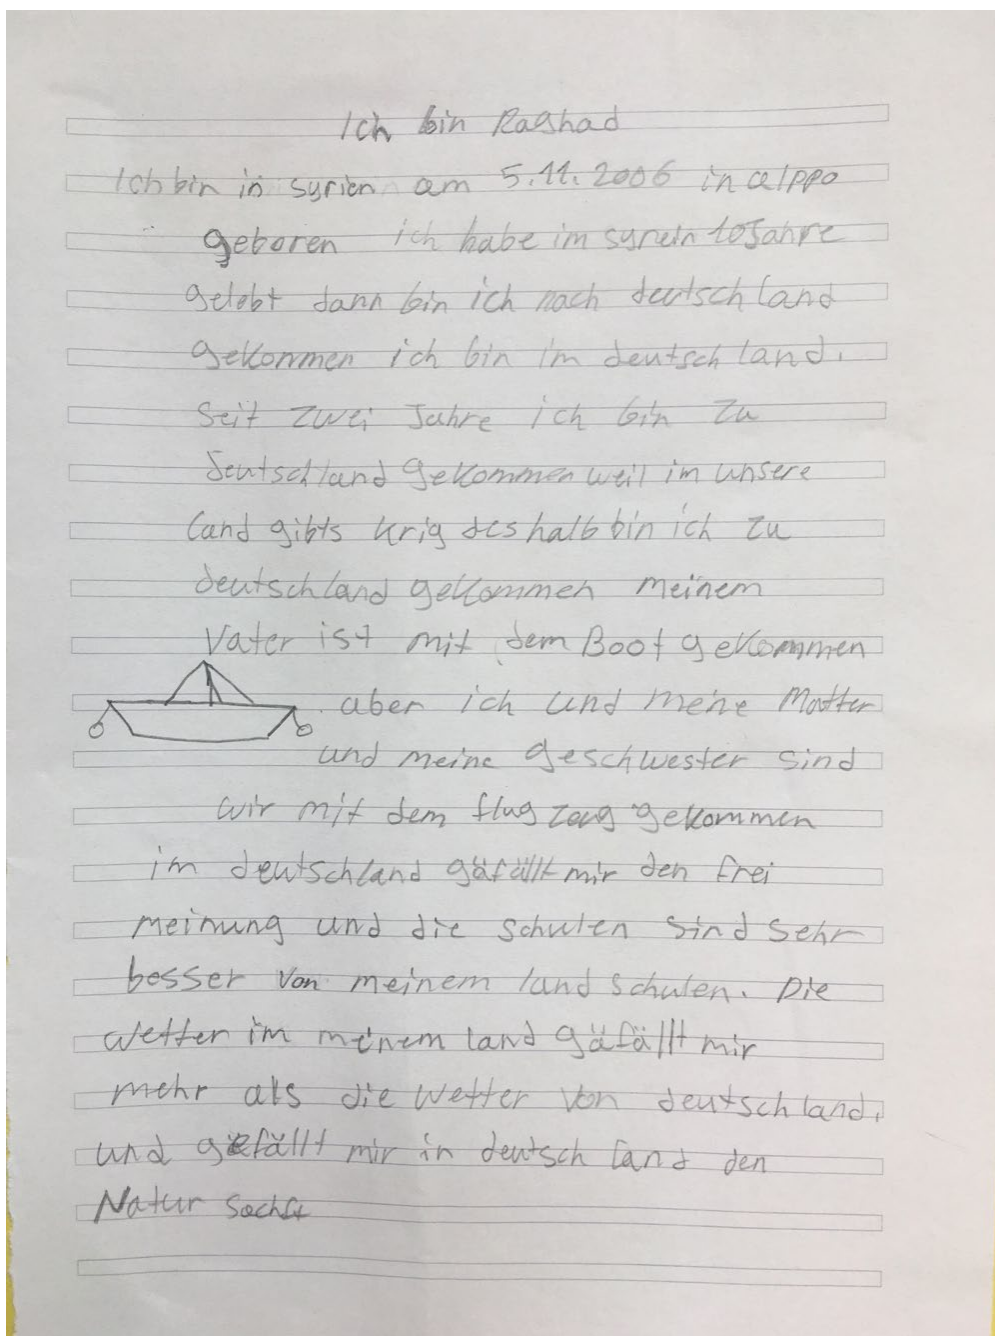 Ich bin Rashad
Ich bin in syrien am 5.11.2006 in alppo
geboren ich habe im syrein 10 Jahre
gelebt dann bin ich nach deutschland
gekommen ich bin im deutschland.
Seit zwei Jahre ich bin zu
deutschland gekommen weil im unsere
land gibts krig deshalb bin ich zu
deutschland gekommen meinem
Vater ist mit dem Boot gekommen
aber ich und meine Mutter
und meine geschwester sind
wir mit dem flug zeug gekommen
im deutschland gäfällt mir den frei
meinung und die schulen sind sehr
besser von meinem land schulen. Die
wetter im meinem land gäfällt mir
mehr als die wetter von deutschland.
und gefällt mir in deutschland den
Natur